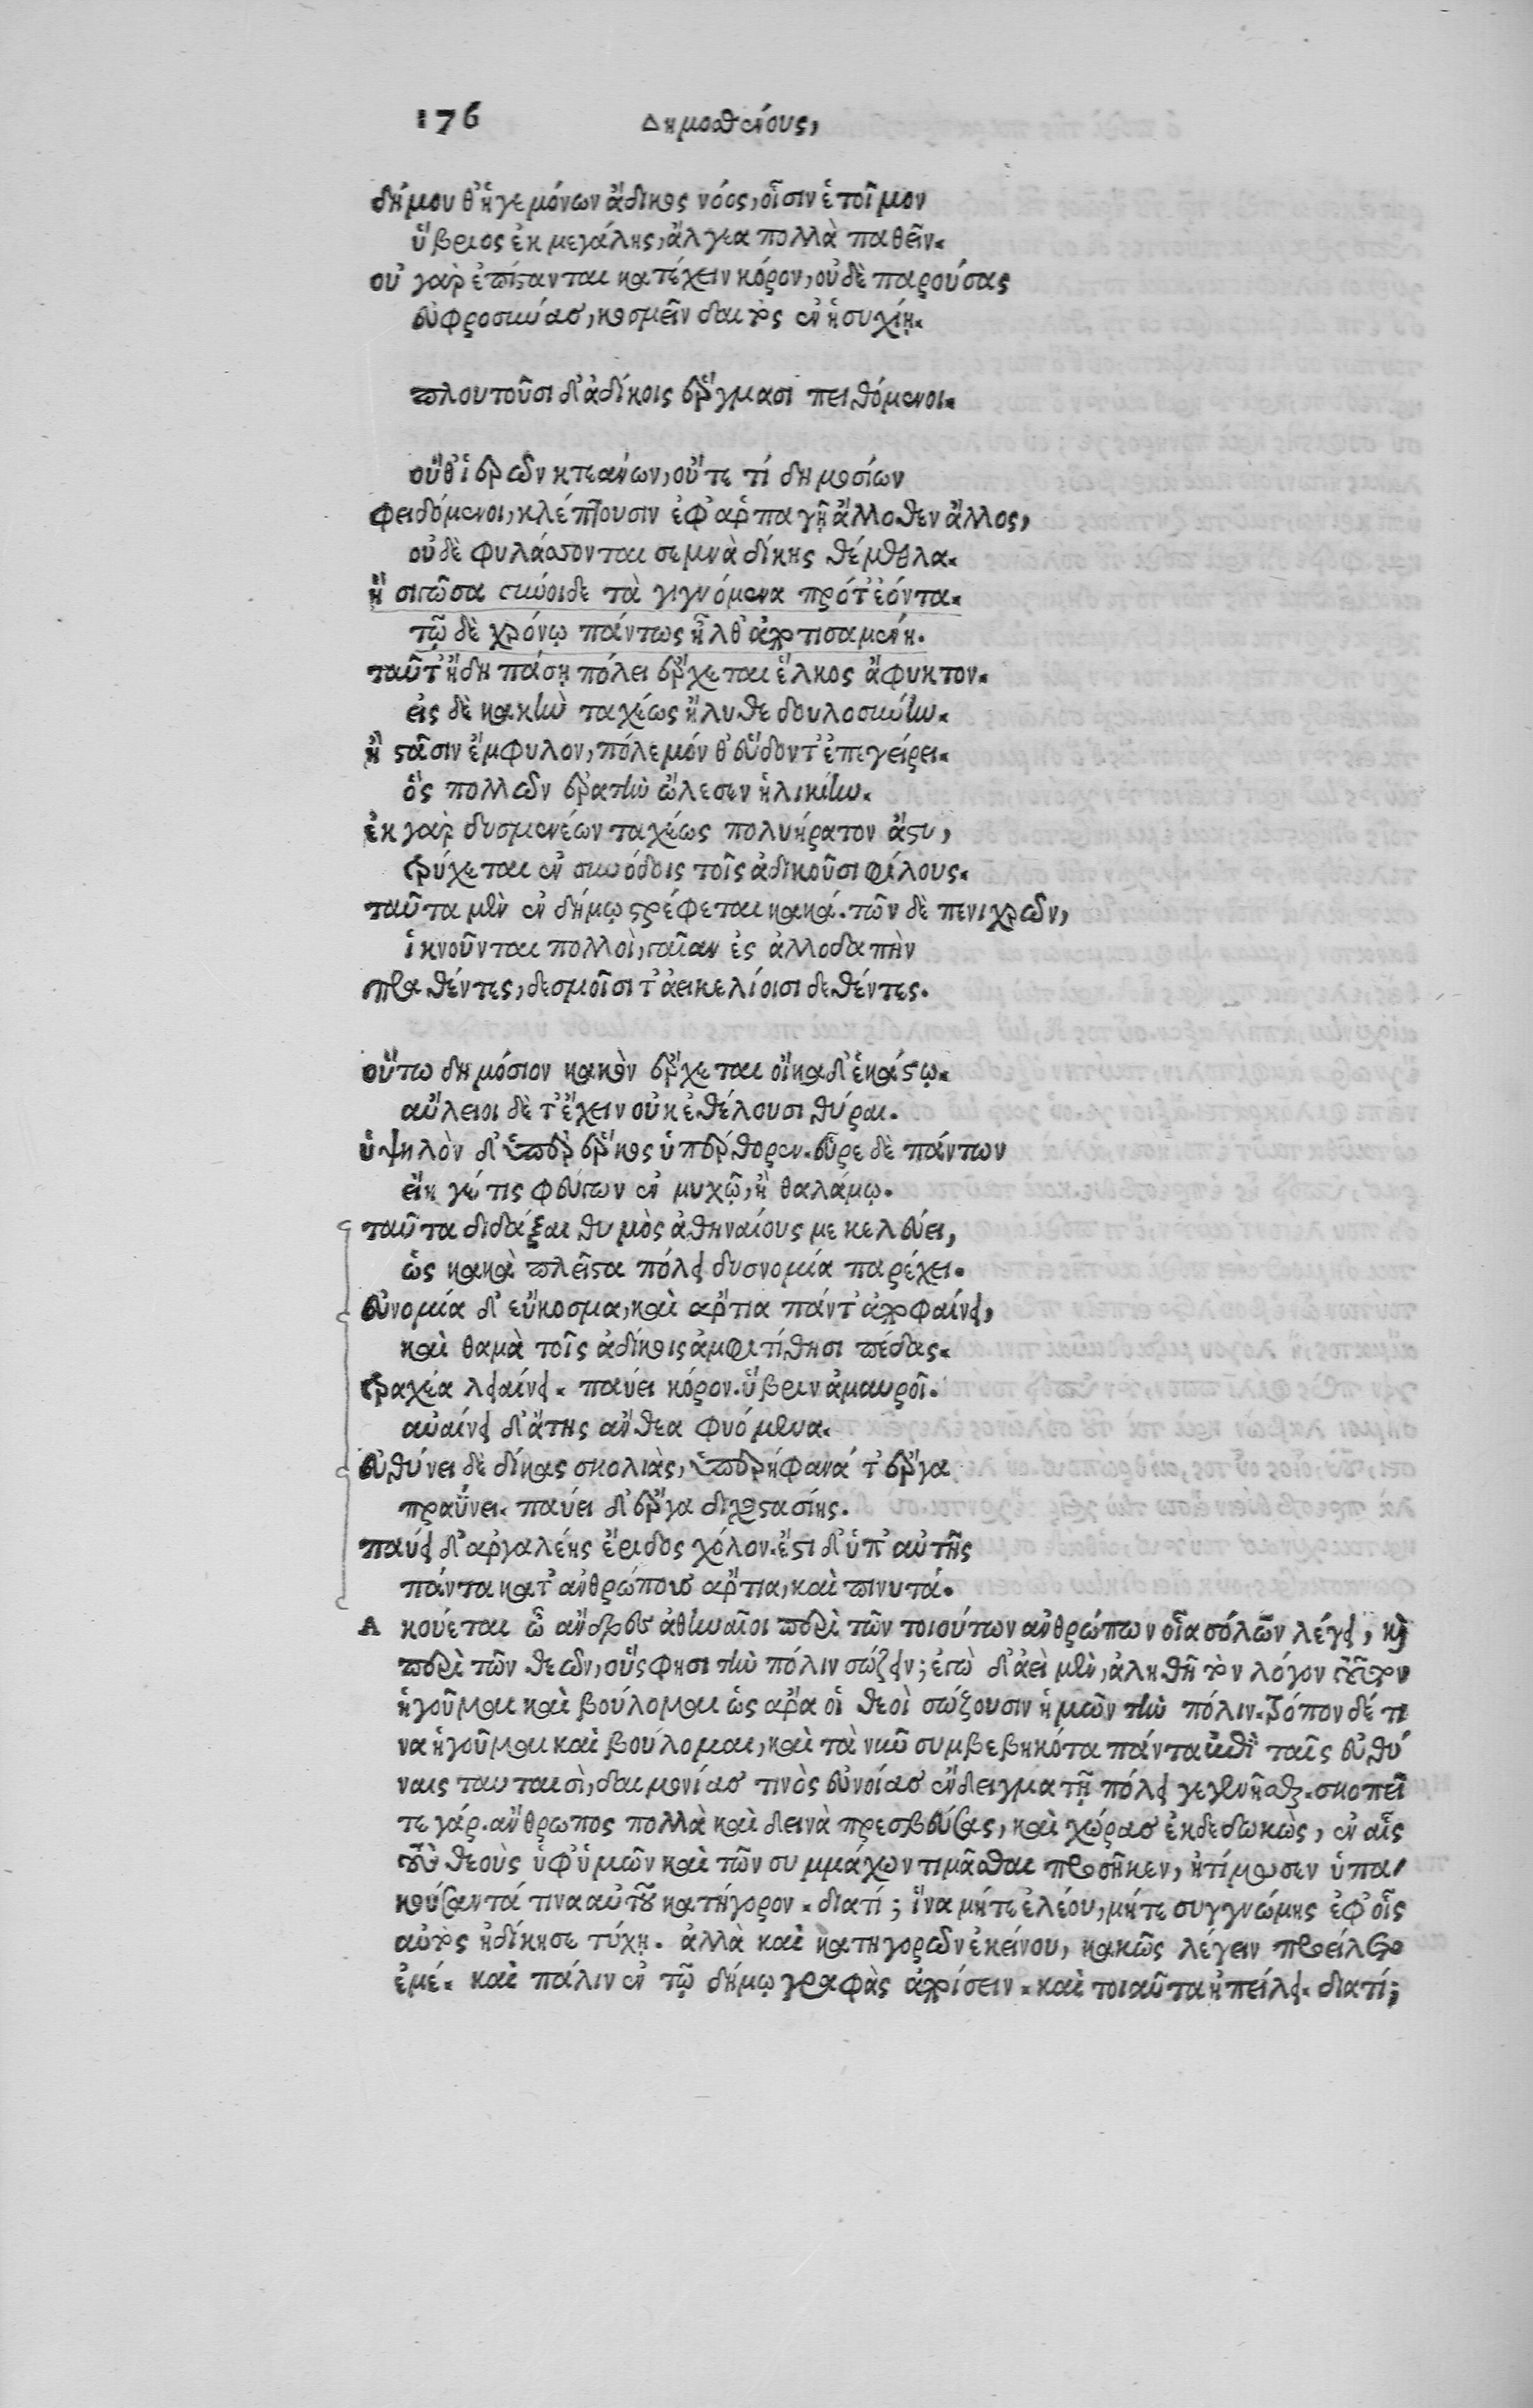 176 Δημοσθένους,
δήμου θ' ἡγεμόνων ἄδικος νόος, οἷσιν ἑτοῖμον
ὕβριος ἐκ μεγάλης, ἄλγεα πολλὰ παθεῖν.
οὐ γὰρ ἐπίστανται κατέχειν κόρον, οὐδὲ παρούσας
εὐφροσύνας, κοσμεῖν δαιτὸς ἐν ἡσυχίῃ.
πλουτοῦσι δ' ἀδίκοις ἔργμασι πειθόμενοι.
οὔθ' ἱερῶν κτεάνων, οὔτε τί δημοσίων
φειδόμενοι, κλέπτουσιν ἐφ' ἁρπαγῇ ἄλλοθεν ἄλλος,
οὐδὲ φυλάσσονται σεμνὰ δίκης θέμεθλα.
ἣ σιγῶσα σύνοιδε τὰ γιγνόμενα πρό τ' ἐόντα.
τῷ δὲ χρόνῳ πάντως ἦλθ' ἀποτισαμένη.
ταῦτ' ἤδη πάσῃ πόλει ἔρχεται ἕλκος ἄφυκτον.
εἰς δὲ κακὴν ταχέως ἤλυθε δουλοσύνην.
ἢ στάσιν ἔμφυλον, πόλεμόν θ' εὕδοντ' ἐπεγείρει.
ὃς πολλῶν ἐρατὴν ὤλεσεν ἡλικίην.
ἐκ γὰρ δυσμενέων ταχέως πολυήρατον ἄστυ,
τρύχεται ἐν συνόδοις τοῖς ἀδικοῦσι φίλους.
ταῦτα μὲν ἐν δήμῳ στρέφεται κακά. τῶν δὲ πενιχρῶν,
ἱκνοῦνται πολλοὶ, γαῖαν ἐς ἀλλοδαπὴν
πραθέντες, δεσμοῖσι τ' ἀεικελίοισι δεθέντες.
οὕτω δημόσιον κακὸν ἔρχεται οἴκαδ' ἑκάστῳ.
αὔλειοι δὲ τ' ἔχειν οὐκ ἐθέλουσι θύραι.
ὑψηλὸν δ' ὑπὲρ ἕρκος ὑπέρθορεν. εὗρε δὲ πάντων
εἴκ γέ τις φεύγων ἐν μυχῷ, ἢ θαλάμῳ.
ταῦτα διδάξαι θυμὸς ἀθηναίους με κελεύει,
ὡς κακὰ πλεῖστα πόλει δυσνομία παρέχει.
εὐνομία δ' εὔκοσμα, καὶ ἄρτια πάντ' ἀποφαίνει,
καὶ θαμὰ τοῖς ἀδίκοις ἀμφιτίθησι πέδας.
τραχέα λειαίνει. παύει κόρον. ὕβριν ἀμαυροῖ.
αὐαίνει δ' ἄτης ἄνθεα φυόμενα.
εὐθύνει δὲ δίκας σκολιὰς, ὑπερήφανά τ' ἔργα
πραΰνει. παύει δ' ἔργα διχοστασίης.
παύει δ' ἀργαλέης ἔριδος χόλον. ἔστι δ' ὑπ' αὐτῆς
πάντα κατ' ἀνθρώπους ἄρτια, καὶ πινυτά.
Ἀκούεται ὦ ἄνδρες ἀθηναῖοι περὶ τῶν τοιούτων ἀνθρώπων οἷα σόλων λέγει, καὶ
περὶ τῶν θεῶν, οὕς φησι τὴν πόλιν σώζειν; ἐγὼ δ' ἀεὶ μὲν, ἀληθῆ τὸν λόγον τοῦτον
ἡγοῦμαι καὶ βούλομαι ὡς ἄρα οἱ θεοὶ σώζουσιν ἡμῶν τὴν πόλιν. τρόπον δέ τι
να ἡγοῦμαι καὶ βούλομαι, καὶ τὰ νῦν συμβεβηκότα πάντα ἐπὶ ταῖς εὐθύ
ναις ταυταισὶ, δαιμονίας τινὸς εὐνοίας ἔνδειγμα τῇ πόλει γεγενῆσθαι. σκοπεῖ
τε γάρ. ἄνθρωπος πολλὰ καὶ δεινὰ πρεσβεύσας, καὶ χώρας ἐκδεδωκὼς, ἐν αἷς
τοὺς θεοὺς ὑφ' ὑμῶν καὶ τῶν συμμάχων τιμᾶσθαι προσῆκεν, ἠτίμωσεν ὑπα-
κούσαντά τινα αὐτοῦ κατήγορον. διατί; ἵνα μήτε ἐλέου, μήτε συγγνώμης ἐφ' οἷς
αὐτὸς ἠδίκησε τύχῃ. ἀλλὰ καὶ κατηγορῶν ἐκείνου, κακῶς λέγειν προείλετο
ἐμέ. καὶ πάλιν ἐν τῷ δήμῳ γραφὰς ἀποίσειν. καὶ τοιαῦτα ἠπείλει. διατί;